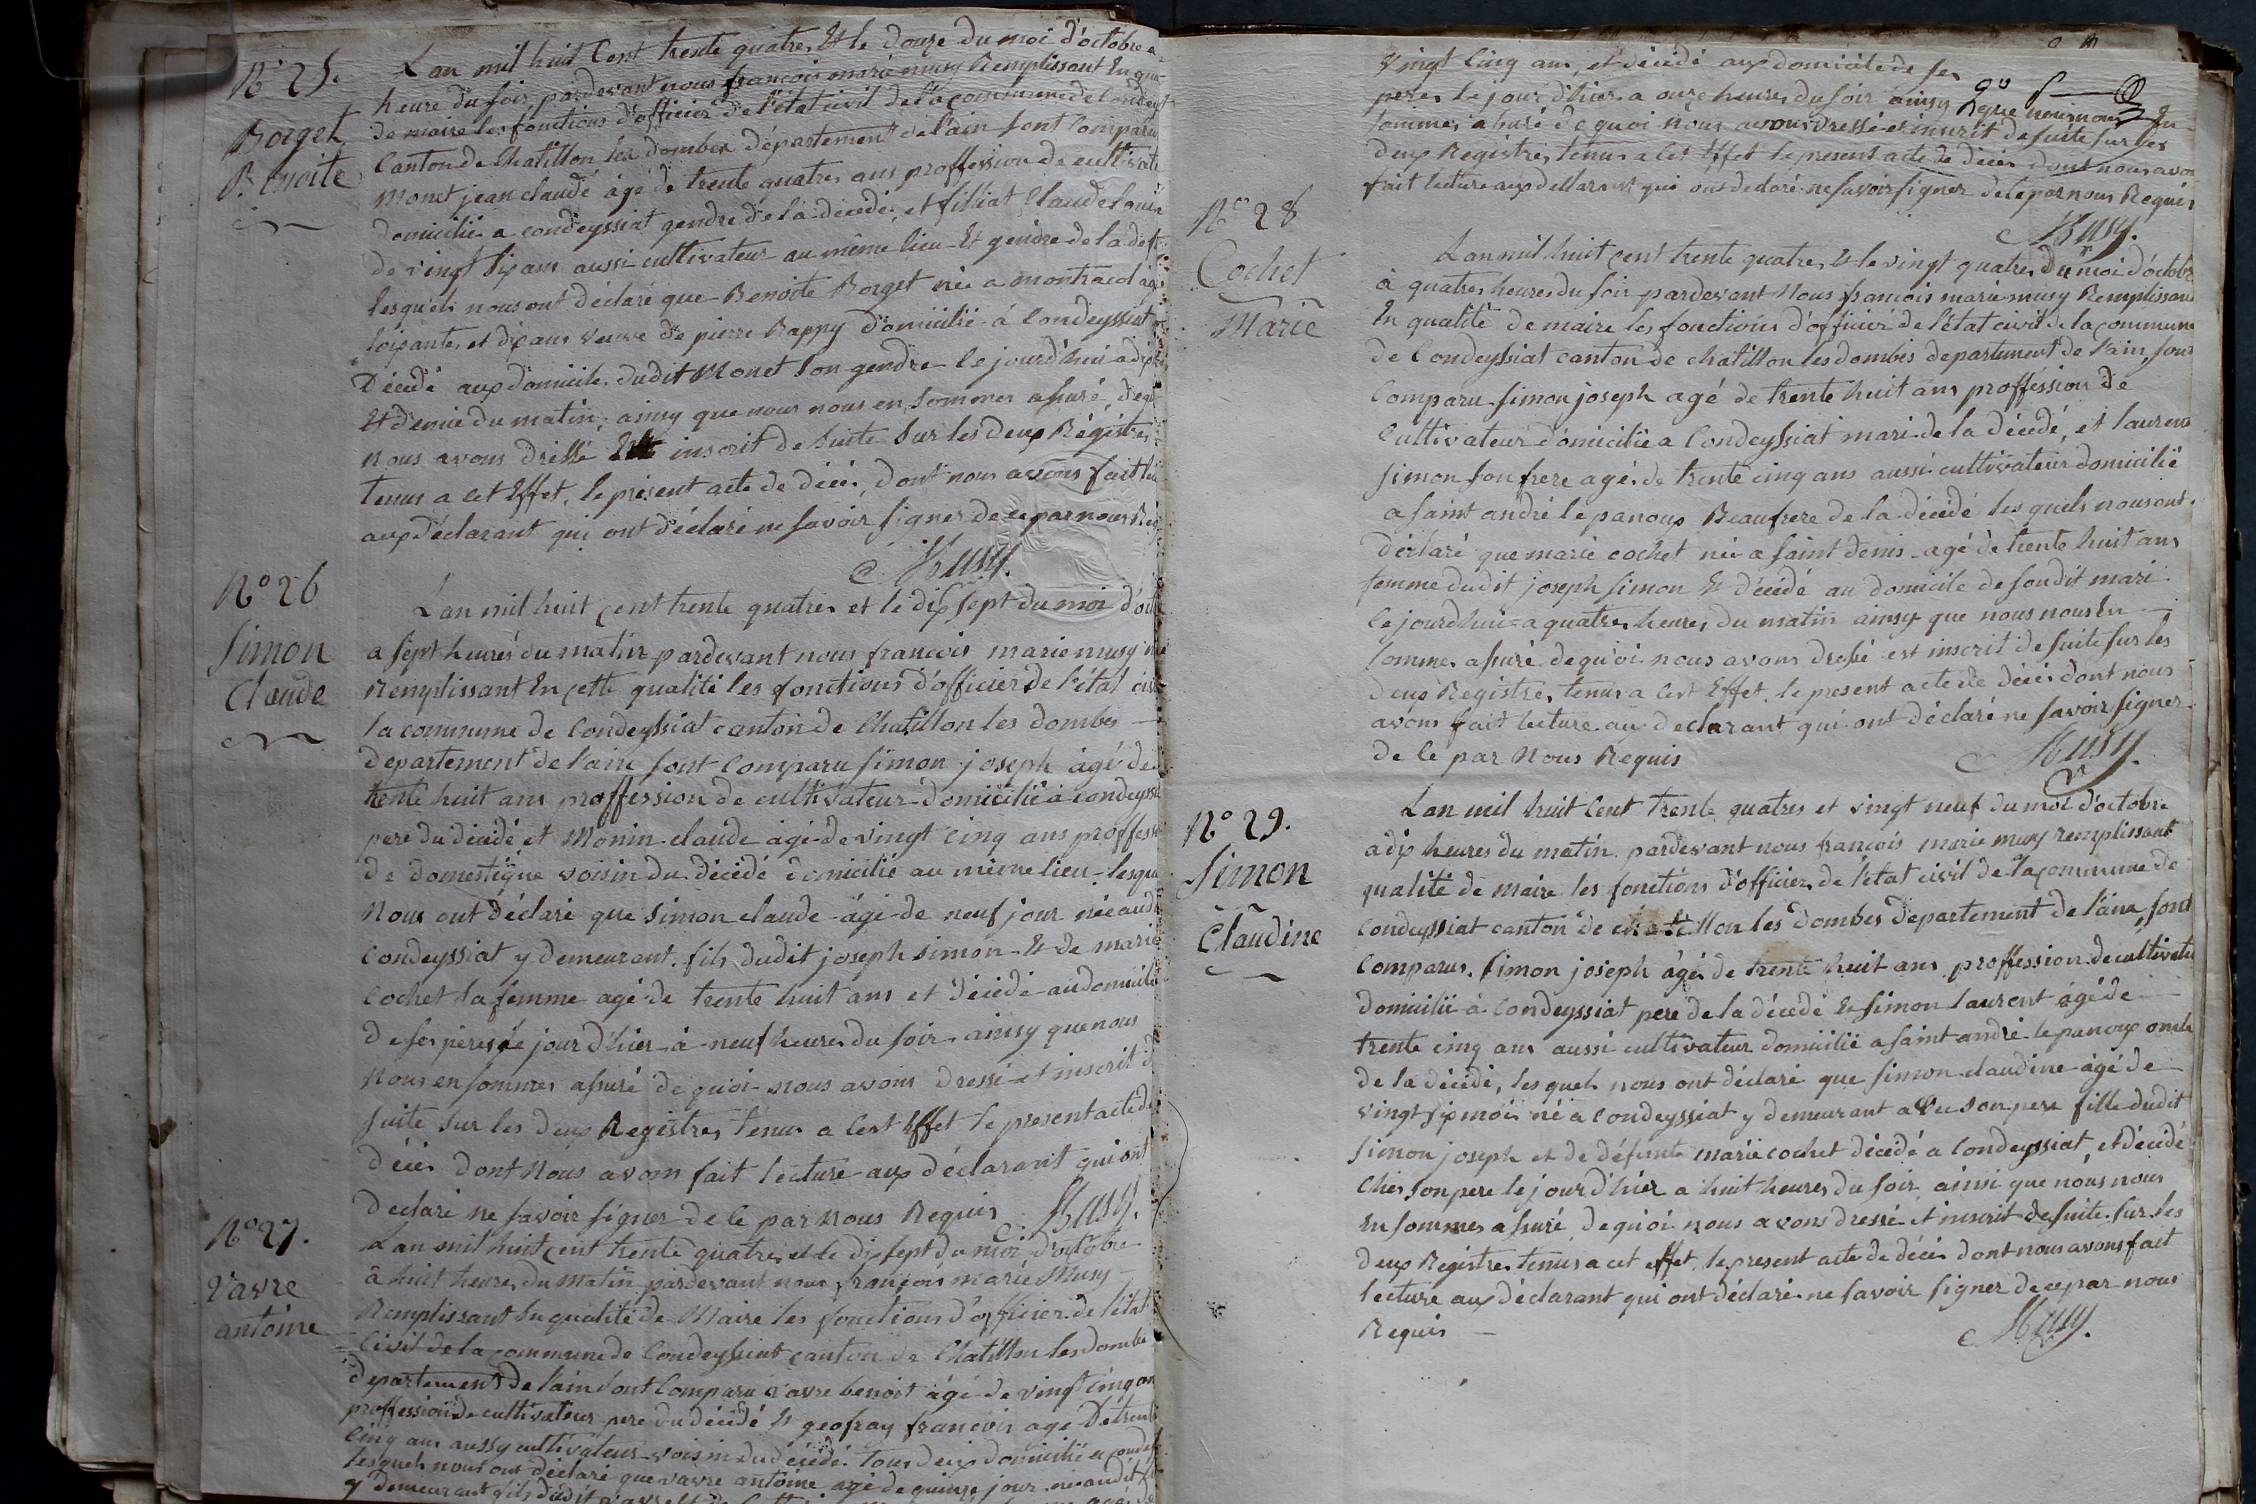 N° 25.
Borget
Benoite
L'an mil huit Cent trente quatres Et le douze du moi d'octobre a
heure du soir, pardevant nous françois marie musy Remplissant En qua-
de maire les fonctions d'officier de l'état civil de la commune de Condeys
Canton de Chatillon les dombes département de l'ain sont Comparu
Monet jean claude âgé de trente quatres ans proffession de cultivate
domicilié a condeyssiat gendre de la décédé, et filliat Claude
de vingt six ans aussi cultivateur au même lieu Et gendre de la def
lesquels nous ont déclaré que Benoite Borget née a montracol agé
soixantes et dix ans veuve de pierre Rappy domicilié à Condeyssiat
Décédé aux domicile dudit Monet son gendre le jourd'hui a dix
Et demie du matin, ainsy que nous nous en sommes assuré, de quoi
nous avons dréssé Est inscrit de suite sur les deux Régistres
tenus a cet Effet, le présent acte de décès, dont nous avons fait lec
aux déclarant qui ont déclaré ne savoir signer de ce par nous Req
Musy.
N° 26
Simon
Claude
L'an mil huit cent trente quatres et le dix sept du moi d'octo
a sept heures du matin pardevant nous francois marie musy
Remplissant En cette qualité les fonctions d'officier de l'état civi
la commune de Condeyssiat canton de Chatillon les dombes
departement de l'ain sont Comparu Simon joseph âgé de
trente huit ans proffession de cultivateur domicilié à condeyssi
pere du décédé et Monin claude agé de vingt cinq ans proffess
de domestique voisin du décédé domicilié au même lieu lesque
Nous ont déclaré que Simon claude âgé de neuf jour née audi
Condeyssiat y demeurant fils dudit joseph simon Et de marie
Cochet sa femme agé de trente huit ans et décédé au domicile
de ses peres le jour d'hier à neuf heures du soir, ainsy que nous
Nous en sommes assuré de quoi nous avons dressé et inscrit d
suite sur les deux Registres tenus a cest Effet le present acte de
décès dont Nous avons fait lecture aux déclarant qui ont
declaré ne savoir signer de ce par nous Requis Musy.
N° 27.
Vavre
antoine
L'an mil huit cent trente quatres et le dix sept du moi d'octobre
a huit heures du matin pardevant nous françois marie Musy
Remplissant En qualité de Maire les fonctions d'officier de l'état
Civil de la commune de Condeyssiat canton de Chatillon les dombe
departement de l'ain sont Comparu vavre benoit âgé de vingt cinq an
proffession de cultivateur pere du décédé Et geofray francois agé de trente
cinq ans aussy cultivateur voisin du décédé tous deux domicilié a condey
lesquels nous ont déclaré que vavre antoine agé de quinze jour né audit
y demeurant fils dudit vavre
vingt cinq ans, et décédé aux domicile de ses
peres le jour d'hier a onze heures du soir ainsy que nous nous En
sommes assuré de quoi nous avons dressé et inscrit de suite sur les
deux Registres tenus a cet Effet le present acte de décès dont nous avon
fait lecture aux déclarant qui ont declaré ne savoir signer de ce par nous Requis
Musy.
N° 28
Cochet
Marie
L'an mil huit cent trente quatres Et le vingt quatres du moi d'octobr
à quatres heures du soir pardevant Nous francois marie musy Remplissant
En qualité de maire les fonctions d'officier de l'état civil de la commune
de Condeyssiat canton de chatillon les dombes departement de l'ain, sont
Comparu simon joseph agé de trente huit ans proffession de
Cultivateur domicilié a Condeyssiat mari de la décédé, et laurent
simon son frere agés de trente cinq ans aussi cultivateur domicilié
a saint andré le panoux Beaufrere de la décédé les quels nous ont
déclaré que marie cochet née a saint denis agé de trente huit ans
femme dudit joseph simon Et décédé au domicile de son dit mari
le jourd'hui a quatres heures du matin ainsy que nous nous En
sommes assuré de quoi nous avons dressé est inscrit de suite sur les
deux Registres tenus a cest Effet le present acte de décès dont nous
avons fait lecture au declarant qui ont déclaré ne savoir signer
de ce par Nous Requis
Musy.
N° 29.
Simon
Claudine
L'an mil huit Cent trente quatres et vingt neuf du moi d'octobre
a dix heures du matin pardevant nous francois marie musy remplissant
qualité de maire les fonctions d'officier de l'état civil de la commune de
Condeyssiat canton de chatillon les dombes departement de l'ain, sont
Comparus simon joseph âgés de trente huit ans proffession de cultivate
domicilié à Condeyssiat pere de la décédé Et simon laurent âgé de
trente cinq ans aussi cultivateur domicilié a saint andré le panoux oncle
de la décédé, lesquels nous ont déclaré que simon claudine âgé de
vingt six mois né a condeyssiat y demeurant avec son pere fille dudit
simon joseph et de défunte marie cochet décédé a Condeyssiat, et décédé
Chés son pere le jour d'hier a huit heures du soir ainsi que nous nous
En sommes assuré de quoi nous avons dressé et inscrit de suite sur les
deux Registres tenus a cet effet, le present acte de décès dont nous avons fait
lecture aux déclarant qui ont déclaré ne savoir signer de ce par nous
Requis
Musy.